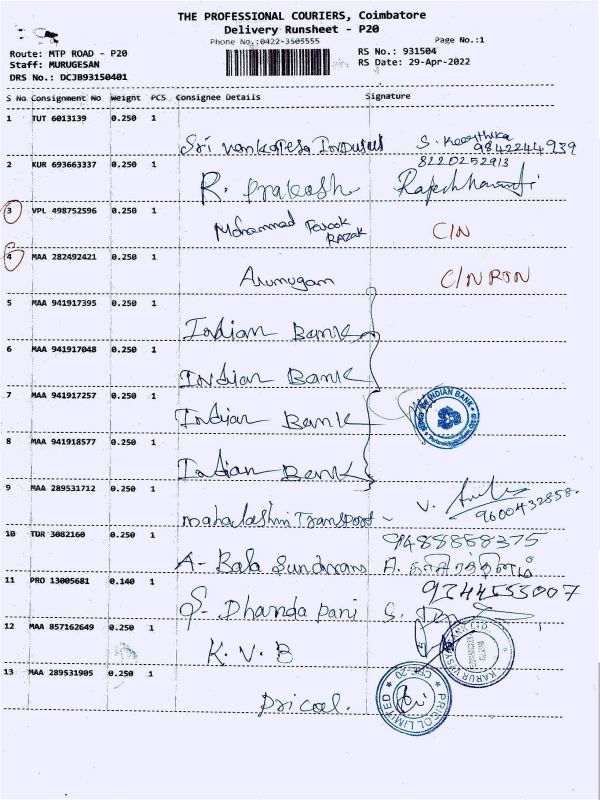 THE PROFESSIONAL COURIERS, Coimbatore
Delivery Runsheet - P20
Phone No.:0422-3505555
Page No.:1
Route: MTP ROAD - P20
RS No.: 931504
Staff: MURUGESAN
RS Date: 29-Apr-2022
DRS No.: DCJB93150401
S No Consignment No Weight PCS Consignee Details Signature
1 TUT 6013139 0.250 1
Sri Venkatesa S. Keerthika
9842244939
2 KUR 693663337 0.250 1 8220252913
R. Prakash
3 VPL 498752596 0.250 1
Mohammad Farook C/N
RAZAK
4 MAA 282492421 0.250 1
Arumugam C/N RTN
5 MAA 941917395 0.250 1
Indian Bank
6 MAA 941917048 0.250 1
Indian Bank
7 MAA 941917257 0.250 1
Indian Bank INDIAN BANK
8 MAA 941918577 0.250 1
Indian Bank
9 MAA 289531712 0.250 1
mahalashmi Transport V.
9600432858
10 TDR 3082160 0.250 1 9488888375
A- Bala Sundaram A.
11 PRO 13005681 0.140 1 9344555007
S. Dhandapani S.
12 MAA 857162649 0.250 1
K. V. B KARUR VYSYA BANK LTD
13 MAA 289531905 0.250 1
Pricol. PRICOL LIMITED
CBE-20